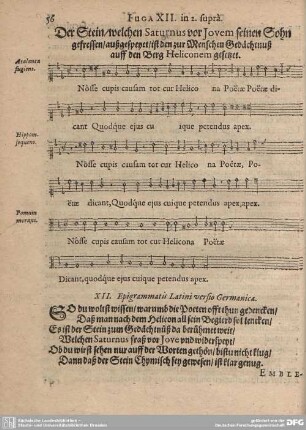 56 FUGA XII. in 2. suprà.
Der Stein / welchen Saturnus vor Jovem seinen Sohn
gefressen / außgespeyet / ist den zur Menschen Gedächtnuß
auff den Berg Heliconem gesetzet.
Atalanta
fugiens.
Nôsse cupis causam tot cur Helico na Poëtæ Poëtæ di-
cant Quodq́ue ejus cu ique petendus apex.
Hippom.
sequens.
Nôsse cupis causam tot cur Helico na Poëtæ, Po-
ëtæ dicant, Quodq́ue ejus cuique petendus apex, apex.
Pomum
morans.
Nôsse cupis causam tot cur Helicona Poëtæ
Dicant, quodq́ue ejus cuique petendus apex.
XII. Epigrammatis Latini versio Germanica.
SO du wolst wissen / warumb die Poeten offt thun gedencken /
Daß man nach dem Helicon all sein Begierd sol lencken /
Es ist der Stein zum Gedächtnüß da berühmet weit /
Welchen Saturnus fraß vor Jove und widerspeyt;
Ob du wirst sehen nur auff der Worten gethön / bistu nicht klug /
Dann daß der Stein Chymisch sey gewesen / ist klar genug.
EMBLE-